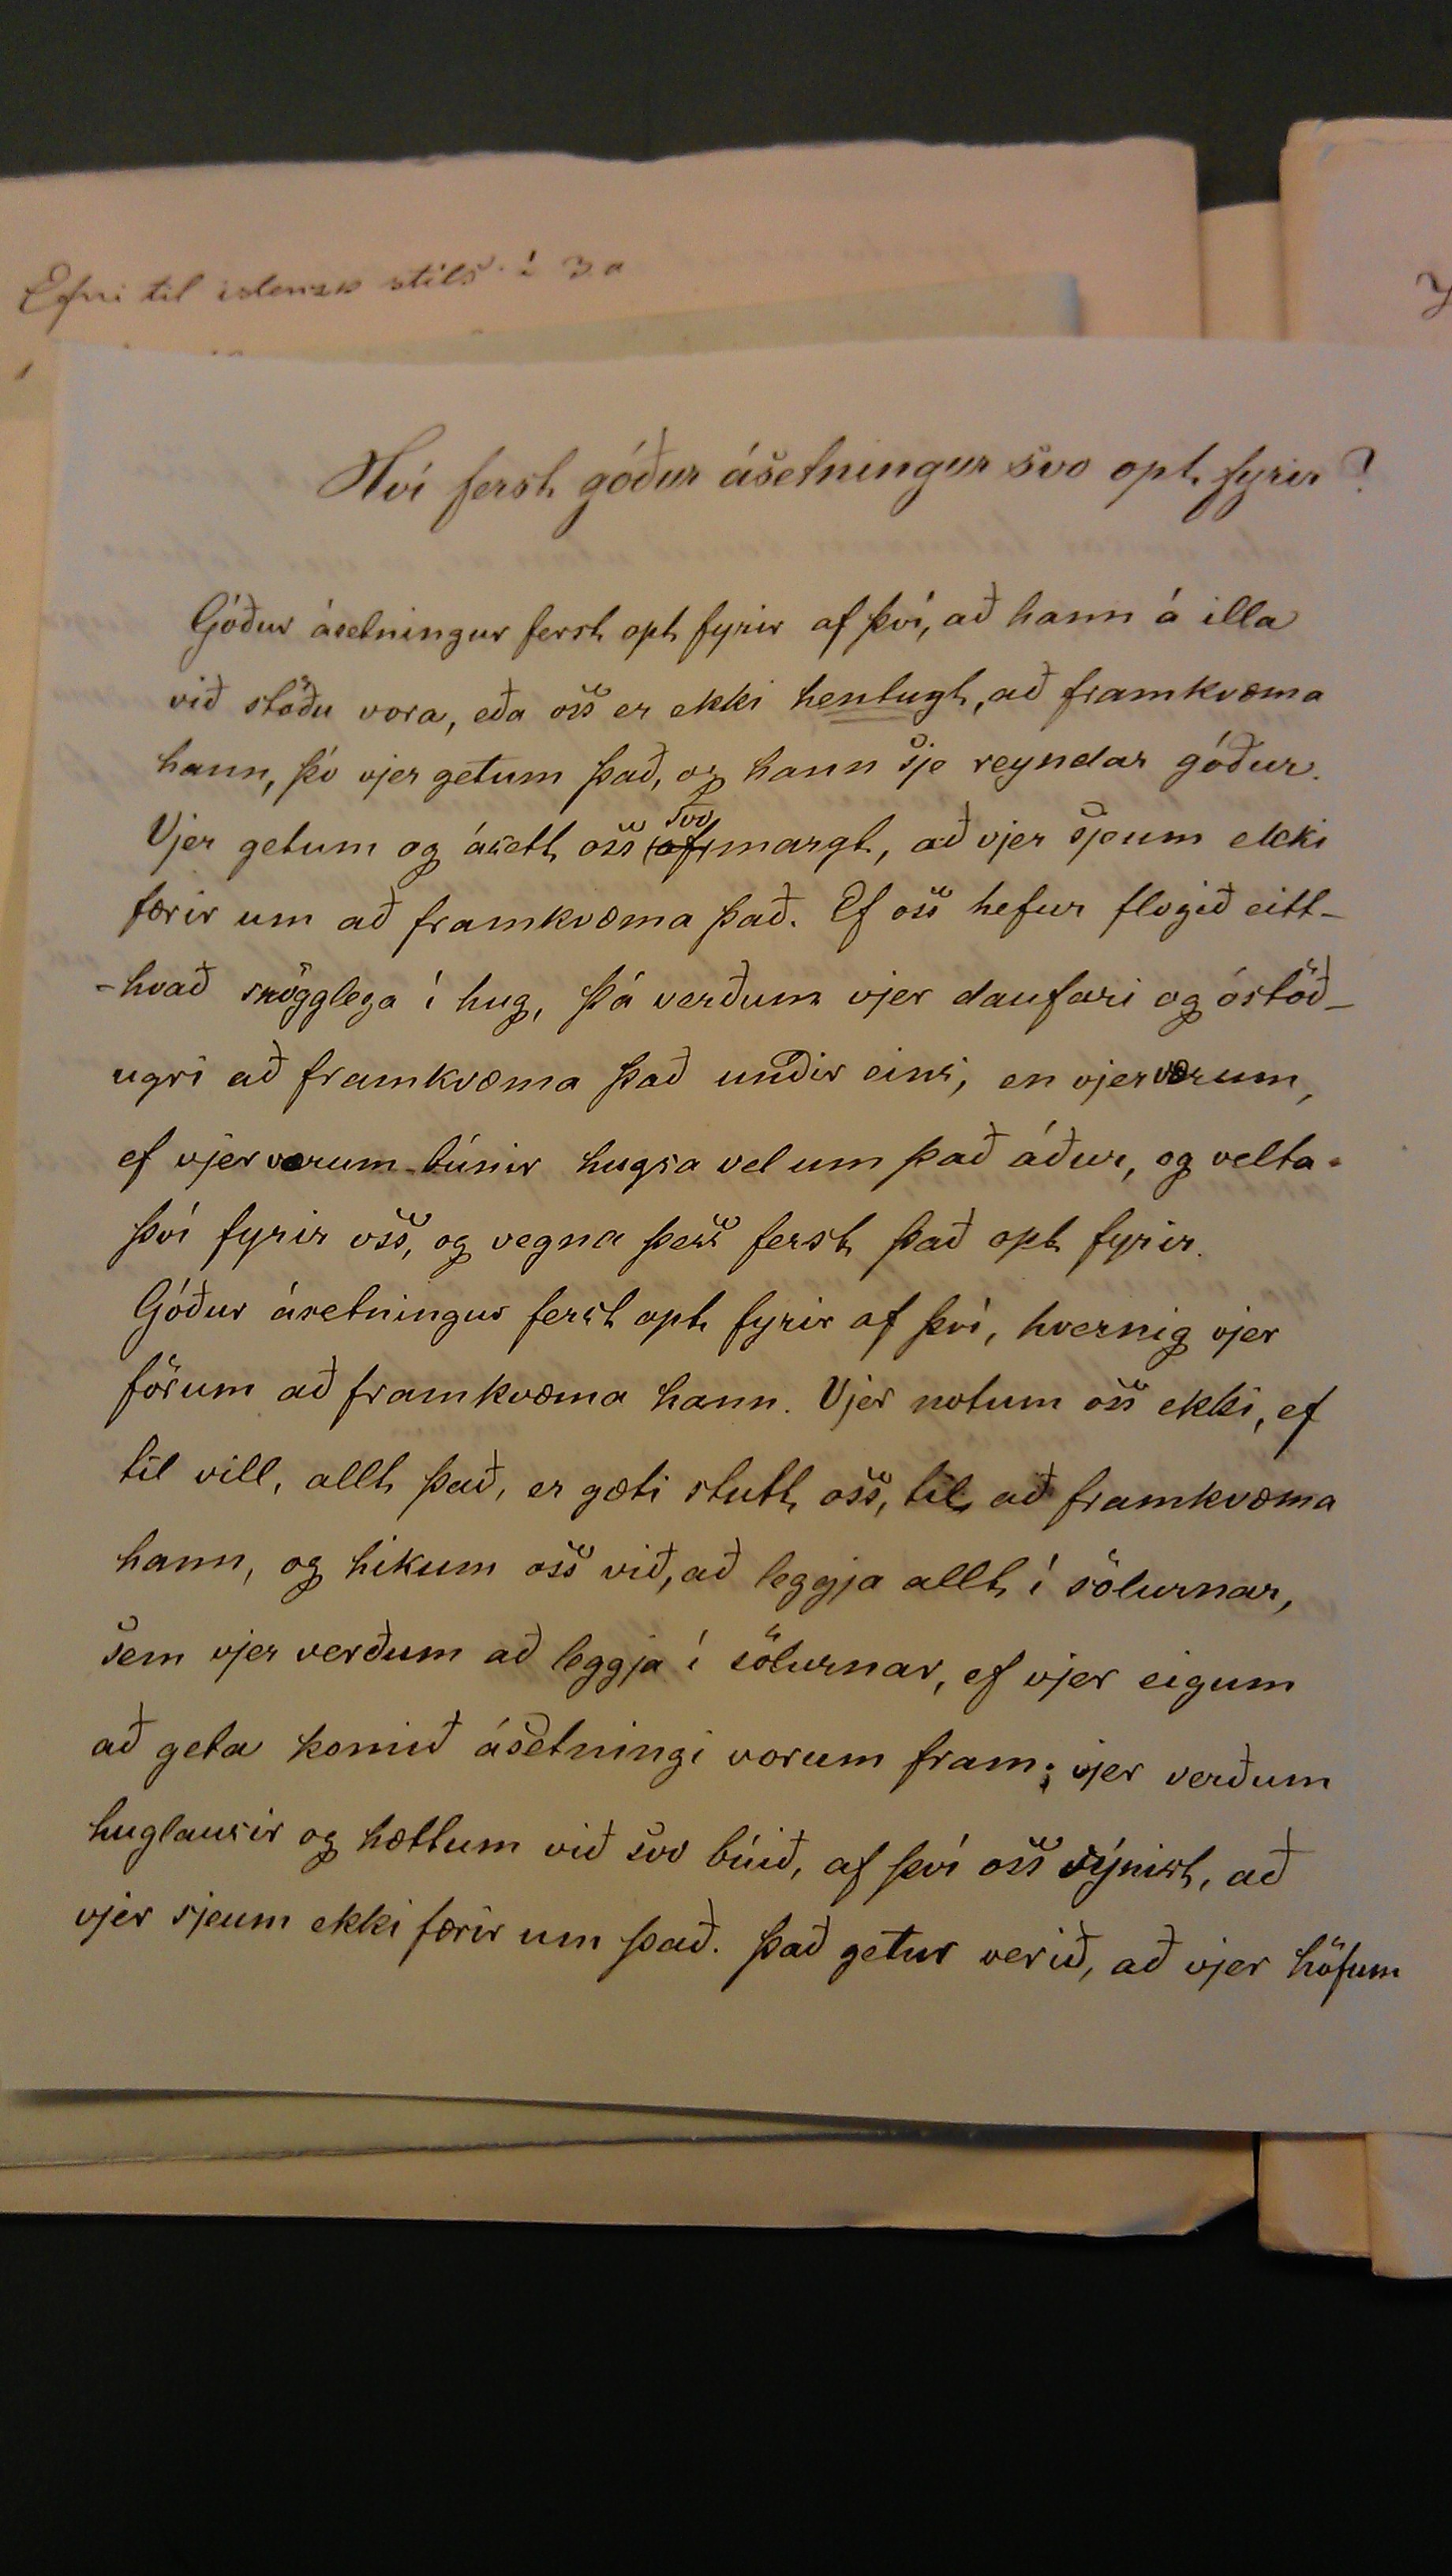 Efni til islenzk stíls í 3 a
Hví ferst góður ásetningur svo opt fyrir?
Góður ásetningur ferst opt fyrir af því, að hann á illa
við stöðu vora, eða oss er ekki hentugt, að framkvæma
hann, þó vjer getum það, og hann sje reyndar góður.
svo
Vjer getum og ásett oss (of) margt, að vjer sjeum ekki
færir um að framkvæma það. Ef oss hefur flogið eitt-
-hvað snögglega í hug, þá verðum vjer daufari og óstöð-
ugri að framkvæma það undir eins, en vjer værum,
ef vjer værum búnir hugsa vel um það áður, og velta
því fyrir oss, og vegna þess ferst það opt fyrir.
Góður ásetningur ferst opt fyrir af því, hvernig vjer
förum að framkvæma hann. Vjer notum oss ekki, ef
til vill, allt það, er gæti stutt oss, til að framkvæma
hann, og hikum oss við, að leggja allt í sölurnar,
sem vjer verðum að leggja í sölurnar, ef vjer eigum
að geta komið ásetningi vorum fram; vjer verðum
huglausir og hættum við svo búið, af því oss sýnist, að
vjer sjeum ekki færir um það. Það getur verið, að vjer höfum